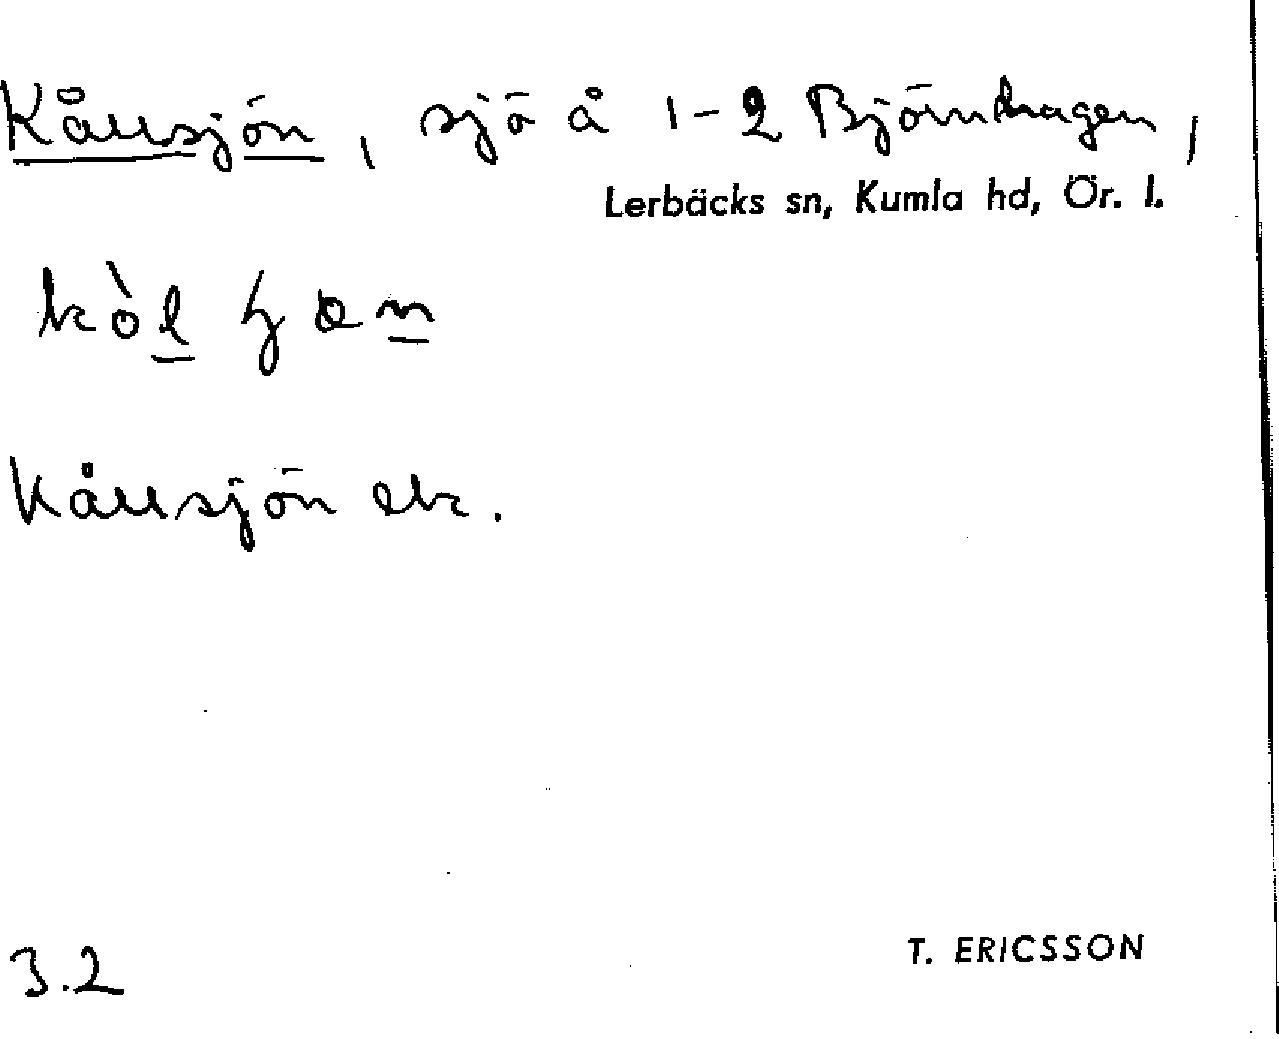 Kållsjön, sjö å 1-2 Björndragen,
Lerbäcks sn, Kumla hd, Ör. l.
Kållsjön ek.
3.2
T. ERICSSON